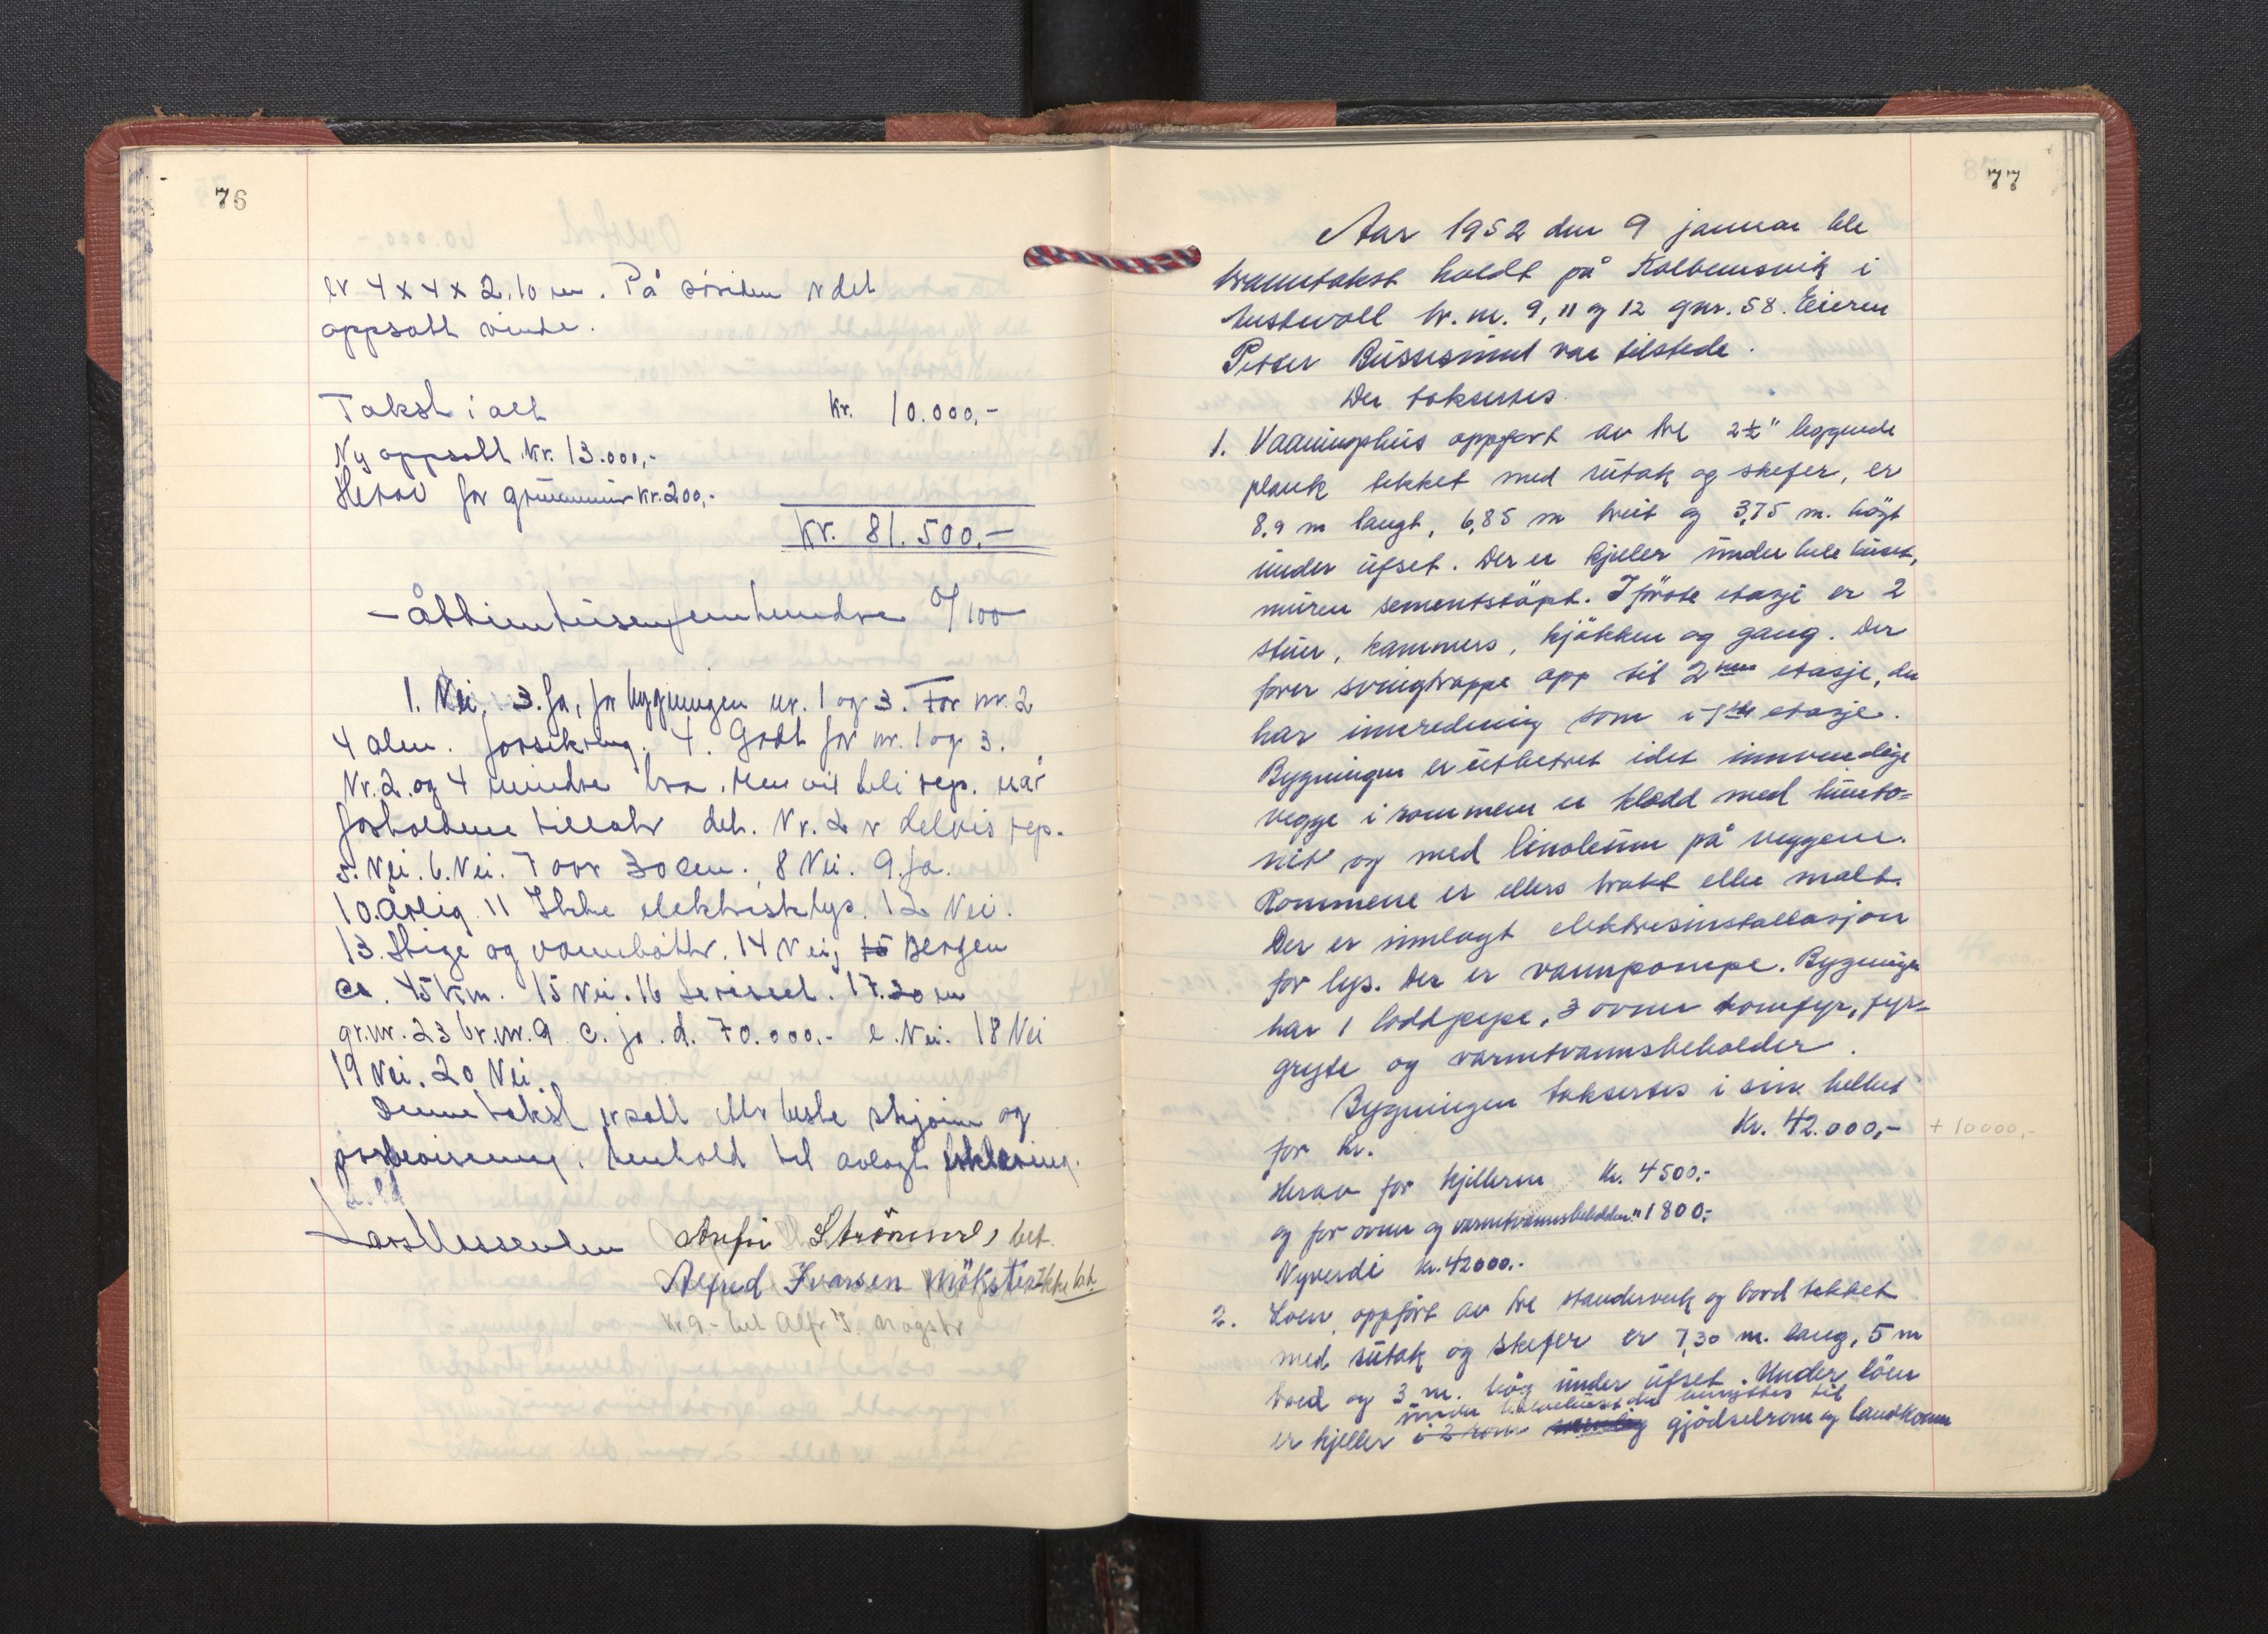 76
er 4 x 4 x 2.10 m. På sørsiden er det
oppsatt vinde.
Takst i alt Kr. 10.000,-
Ny oppsatt Kr. 13.000,-
Herav for grunnmur Kr. 200,-
Kr. 81.500,-
- åttientusenfemhundre 0/100
1. Nei. 3. Ja, for bygningen nr. 1 og 3. For nr. 2
4 alm. forsikring. 4. Godt for nr. 1 og 3.
Nr. 2. og 4 mindre bra. Men vil bli rep. når
forholdene tillater det. Nr. 2 er delvis rep.
5. Nei. 6. Nei. 7 over 30 cm. 8 Nei. 9. Ja.
10. Årlig. 11 Ikke elektrisk lys. 12 Nei.
13. Stige og vannbøtter. 14 Nei, 15 Bergen
ca. 45 km. 15 Nei. 16 17. 20 m
gr.nr. 23 br.nr. 9 c. ja. d. 70.000.- e. Nei. 18 Nei
19 Nei. 20 Nei.
Denne takst er satt etter beste skjønn og
overbevisning i henhold til avlagt erklæring.
Lars Strømme, bet.
Alfred Ivarsen Møkster ikke bet.
Kr 9.- bet Alfr I. Møgster
77
Aar 1952 den 9 januar ble
branntakst holdt på Kolbeinsvik i
Austevoll br. nr. 9, 11 og 12 gnr. 58. Eieren
Petter Bussesund var tilstede.
Der taksertes.
1. Vaaningshus oppført av tre 2½" liggende
plank tekket med sutak og skifer, er
8,9 m langt, 6,85 m breit og 3,75 m. högt
under ufset. Der er kjeller under hele huset,
muren sementstöpt. I förste etasje er 2
stuer, kammers, kjökken og gang. Der
förer svingtrappe opp til 2nen etasje, den
har innredning som i 1ste etasje.
Bygningen er utbetret idet innvendige
vegge i rommene er kledd med hunto=
nit og med linoleum på veggene.
Rommene er ellers trakt eller malt.
Der er innlagt elektrisinstallasjon
for lys. Der er vannpompe. Bygningen
har 1 loddpipe, 3 ovner komfyr, fyr-
gryte og varmtvannsbeholder.
Bygningen taksertes i sin helhet
for Kr. Kr. 42.000,- + 10000,-
Herav for kjelleren Kr. 4500,-
og for ovner og varmtvannsbeholder " 1800,-
Nyverdi Kr. 42000.-
2. Loen, oppført av tre standerverk og bord tekket
med sutak og skifer er 7,30 m. lang, 5 m
bred og 3 m. höy under ufset. Under löen
under der benyttes til
er kjeller i 2 rom gjödselrom og